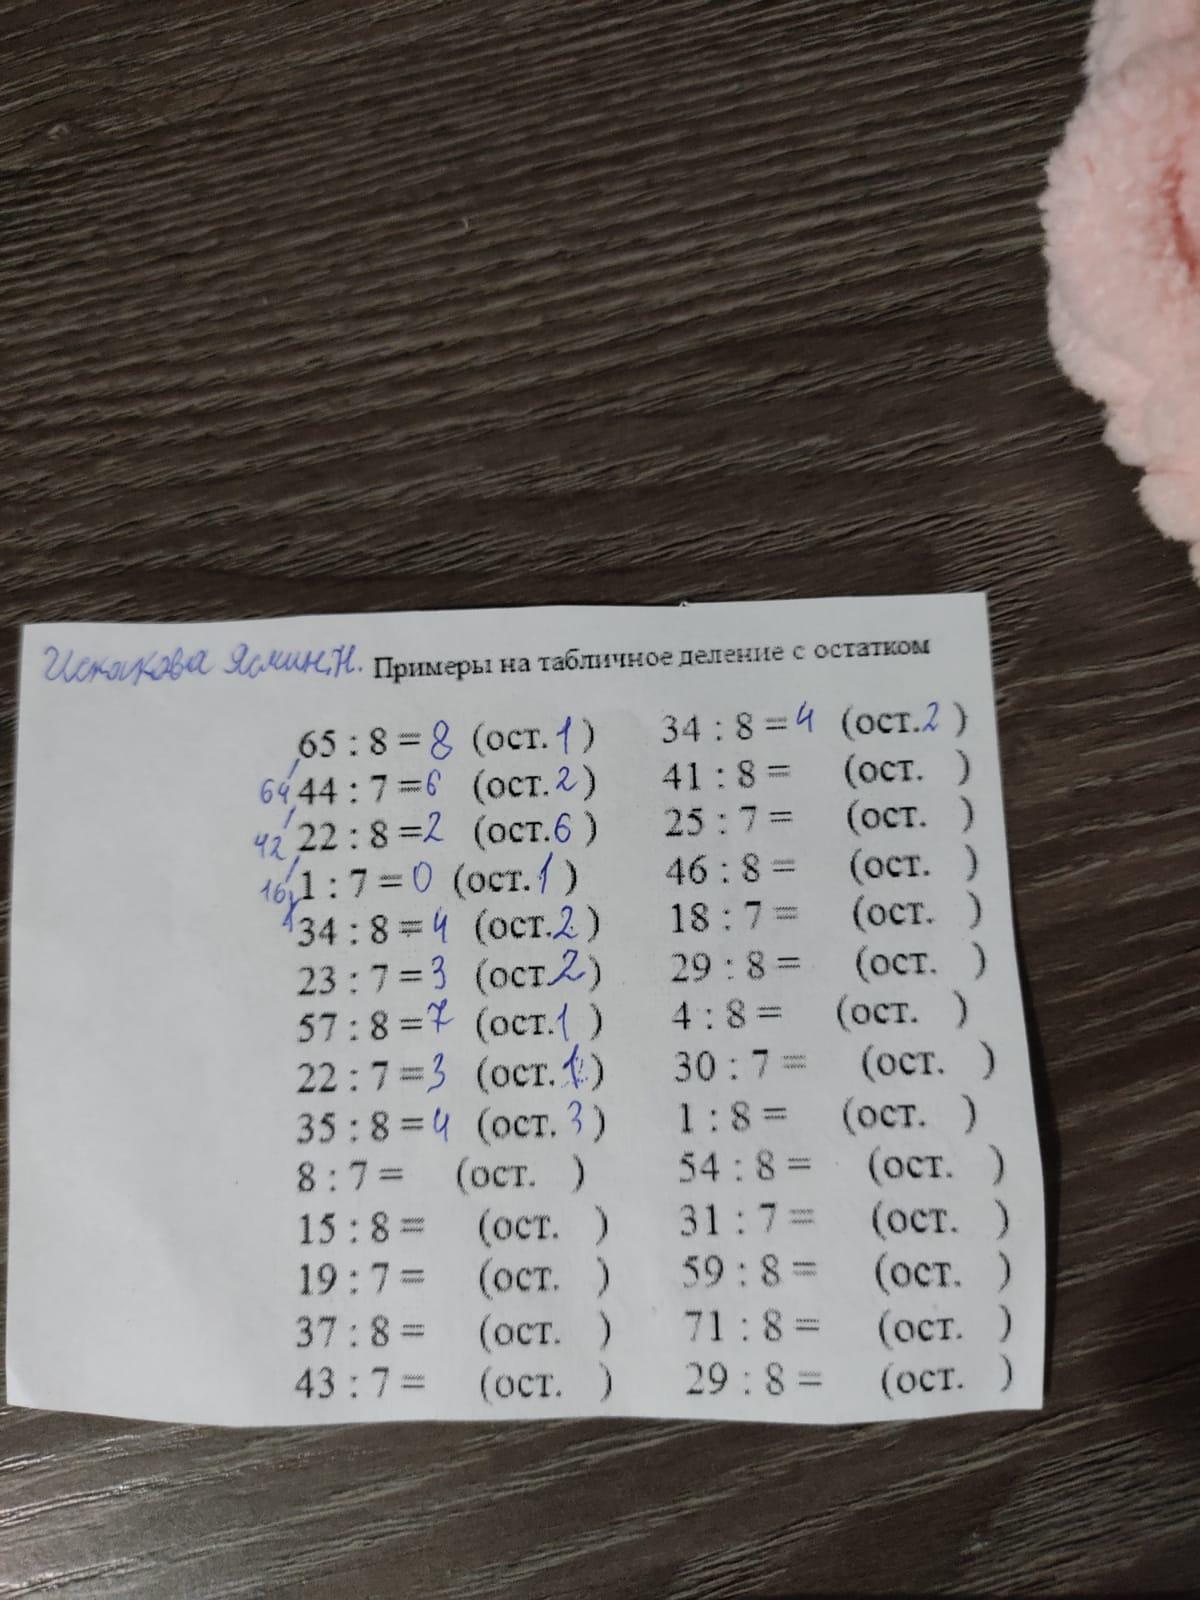 Искакова Ясмин.Н. Примеры на табличное деление с остатком
65 : 8 = 8 (ост. 1 )
64 44 : 7 = 6 (ост. 2 )
42 22 : 8 = 2 (ост. 6 )
16 1 : 7 = 0 (ост. 1 )
34 : 8 = 4 (ост. 2 )
23 : 7 = 3 (ост. 2 )
57 : 8 = 7 (ост. 1 )
22 : 7 = 3 (ост. 1 )
35 : 8 = 4 (ост. 3 )
8 : 7 = (ост. )
15 : 8 = (ост. )
19 : 7 = (ост. )
37 : 8 = (ост. )
43 : 7 = (ост. )
34 : 8 = 4 (ост. 2 )
41 : 8 = (ост. )
25 : 7 = (ост. )
46 : 8 = (ост. )
18 : 7 = (ост. )
29 : 8 = (ост. )
4 : 8 = (ост. )
30 : 7 = (ост. )
1 : 8 = (ост. )
54 : 8 = (ост. )
31 : 7 = (ост. )
59 : 8 = (ост. )
71 : 8 = (ост. )
29 : 8 = (ост. )